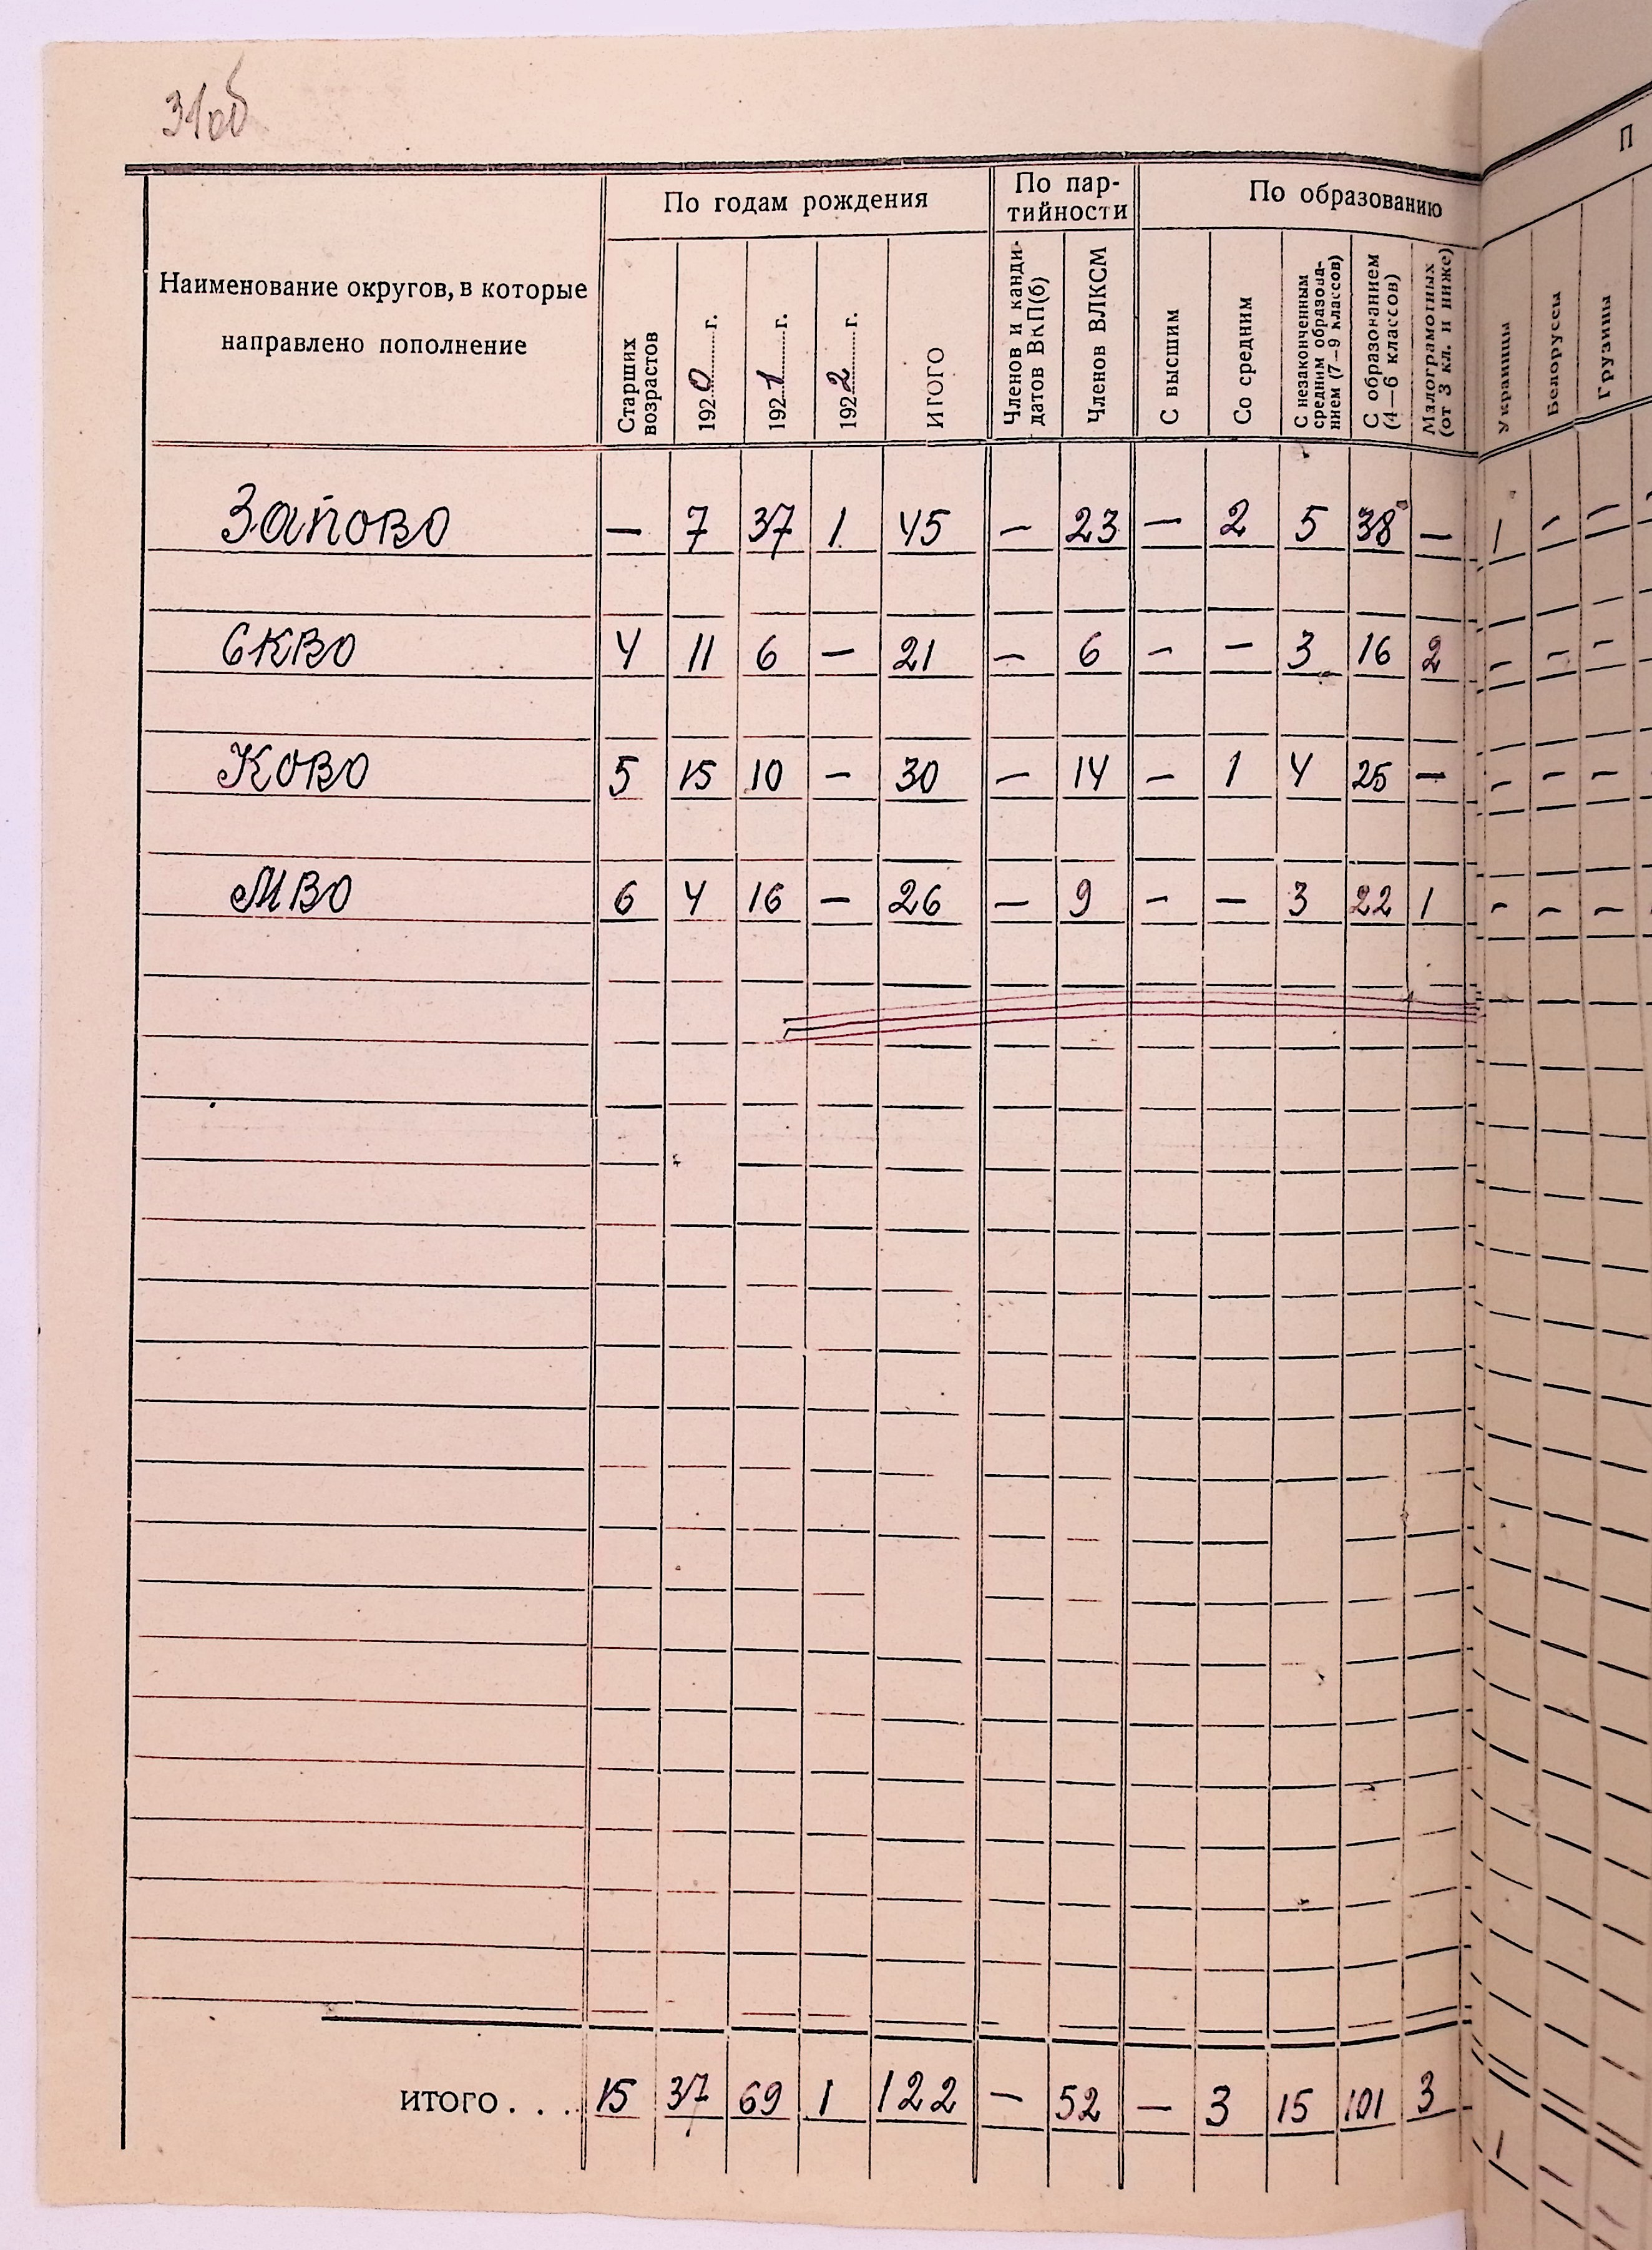 31об
По годам рождения
По пар-
тийности
По образованию
П
Наименование округов, в которые
направлено пополнение
Старших
возрастов
1920 г.
1921 г.
1922 г.
ИТОГО
Членов и канди-
датов ВКП(б)
Членов ВЛКСМ
С высшим
Со средним
С незаконченным
средним образова-
нием (7—9 классов)
С образованием
(4—6 классов)
Малограмотных
(от 3 кл. и ниже)
Украинцы
Белоруссы
Грузины
Запово — 7 37 1 45 — 23 — 2 5 38 — 1 — —
СКВО 4 11 6 — 21 — 6 — — 3 16 2 — — —
КОВО 5 15 10 — 30 — 14 — 1 4 25 — — — —
МВО 6 4 16 — 26 — 9 — — 3 22 1 — — —
ИТОГО . . . 15 37 69 1 122 — 52 — 3 15 101 3 1